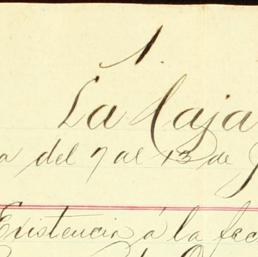 1.
La Caja
del 7 al 13 de
Existencia á la fec